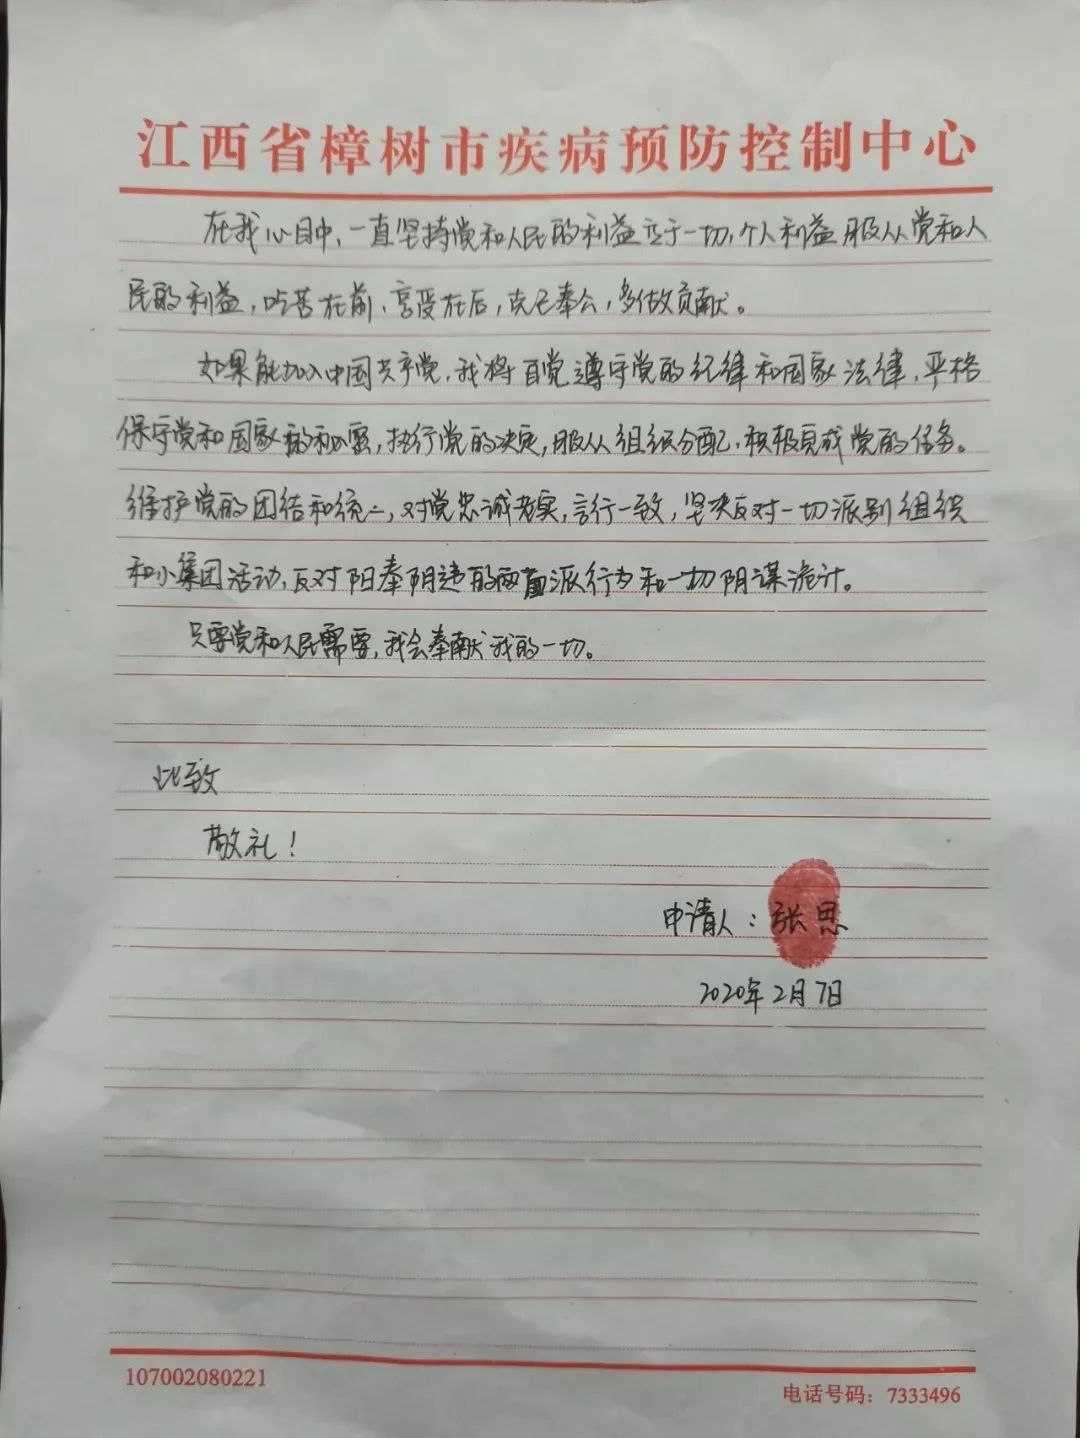 江西省樟树市疾病预防控制中心
在我心目中，一直坚持党和人民的利益立于一切，个人利益服从党和人
民的利益，吃苦在前，享受在后，克己奉公，多做贡献。
如果能加入中国共产党，我将自觉遵守党的纪律和国家法律，严格
保守党和国家的秘密，执行党的决定，服从组织分配，积极完成党的任务。
维护党的团结和统一，对党忠诚老实，言行一致，坚决反对一切派别组织
和小集团活动，反对阳奉阴违的两面派行为和一切阴谋诡计。
只要党和人民需要，我会奉献我的一切。
此致
敬礼！
申请人：张思
2020年2月7日
107002080221
电话号码：7333496